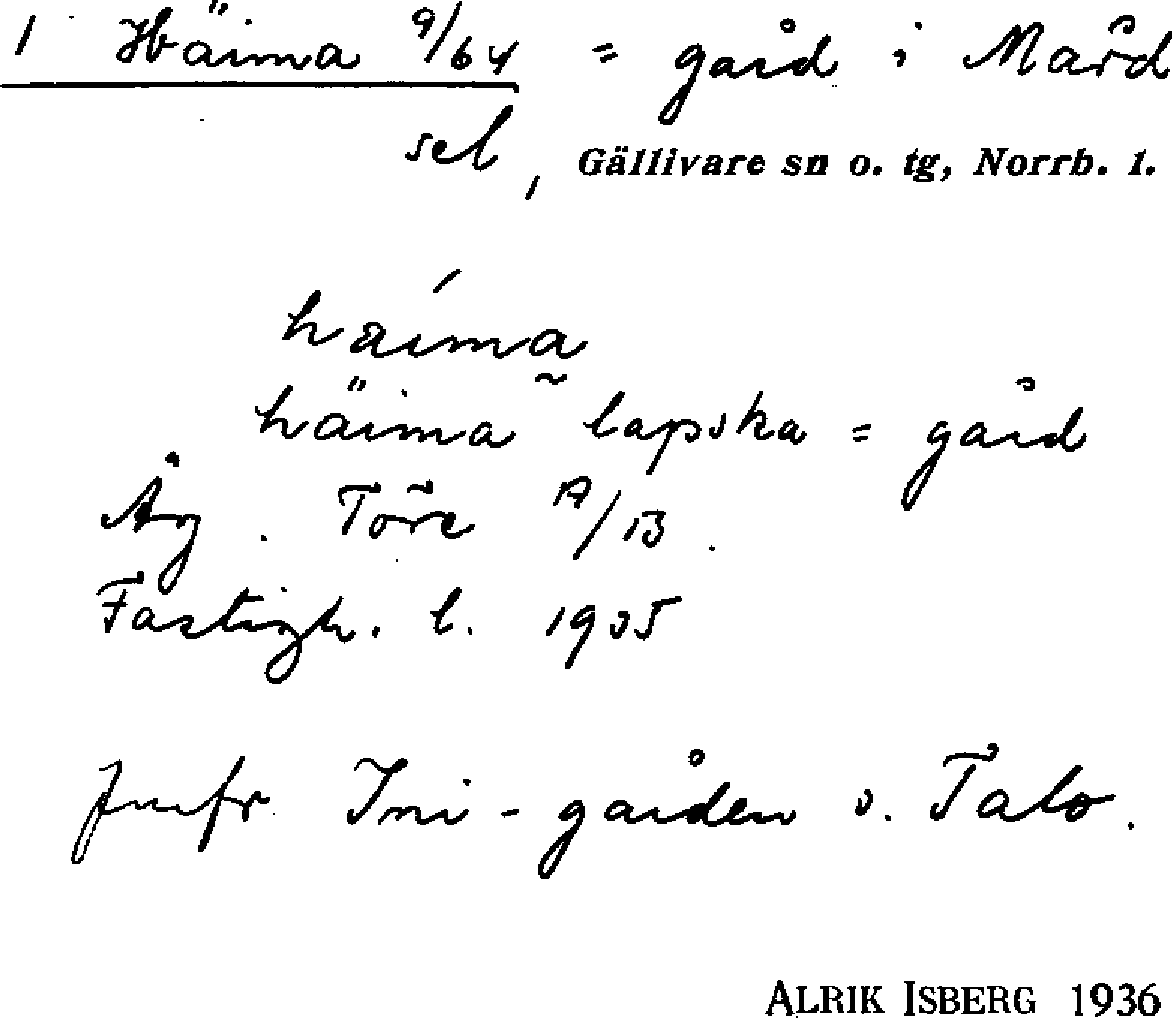 1 Häima 9/64 = gård i Mård
sel, Gällivare sn o. tg, Norrb. l.
háima
häima lapska = gård
Äg. Töre A/B.
Fastigh. l. 1935
Jmfr. Ini-gården o. Talo.
ALRIK ISBERG 1936